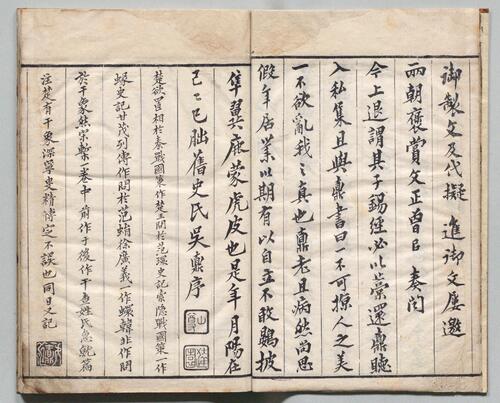 御製文及代擬進御文屢邀
兩朝褒賞文正曾已奏聞
今上退謂其子錫經必以藁還鼎聽
入私集且與鼎書曰一不可掠人之美
一不欲亂我之真也鼎老且病然尚思
假年居業以期有以自立不敢鷃披
隼翼鹿蒙虎皮也是年月陽在
己己巳朏舊史氏吳鼒序
楚欲置相於秦戰國策作楚王問於范環史記索隱戰國策一作
蝝史記甘茂列傳作問於范蜎徐廣義一作蠉韓非作問
於干象然宋槧卷中前作于後作干查姓氏急就篇
注是有干象深寧史精博定不誤也同日又記